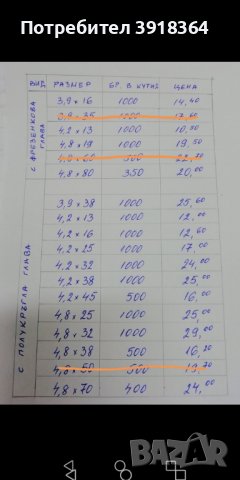 Потребител 3918364
ВИД РАЗМЕР БР. В КУТИЯ ЦЕНА
С ФРЕЗЕНКОВА ГЛАВА
3,9 x 16 1000 14,40
3,9 x 35 1000 17,60
4,2 x 13 1000 10,50
4,8 x 19 1000 19,50
4,8 x 60 500 22,70
4,8 x 80 350 20,00
С ПОЛУКРЪГЛА ГЛАВА
3,9 x 38 1000 25,60
4,2 x 13 1000 12,00
4,2 x 16 1000 12,60
4,2 x 25 1000 17,00
4,2 x 32 1000 24,00
4,2 x 38 1000 25,00
4,2 x 45 500 16,00
4,8 x 25 1000 25,00
4,8 x 32 1000 29,00
4,8 x 38 500 16,20
4,8 x 50 500 19,70
4,8 x 70 400 24,00
BAZAR